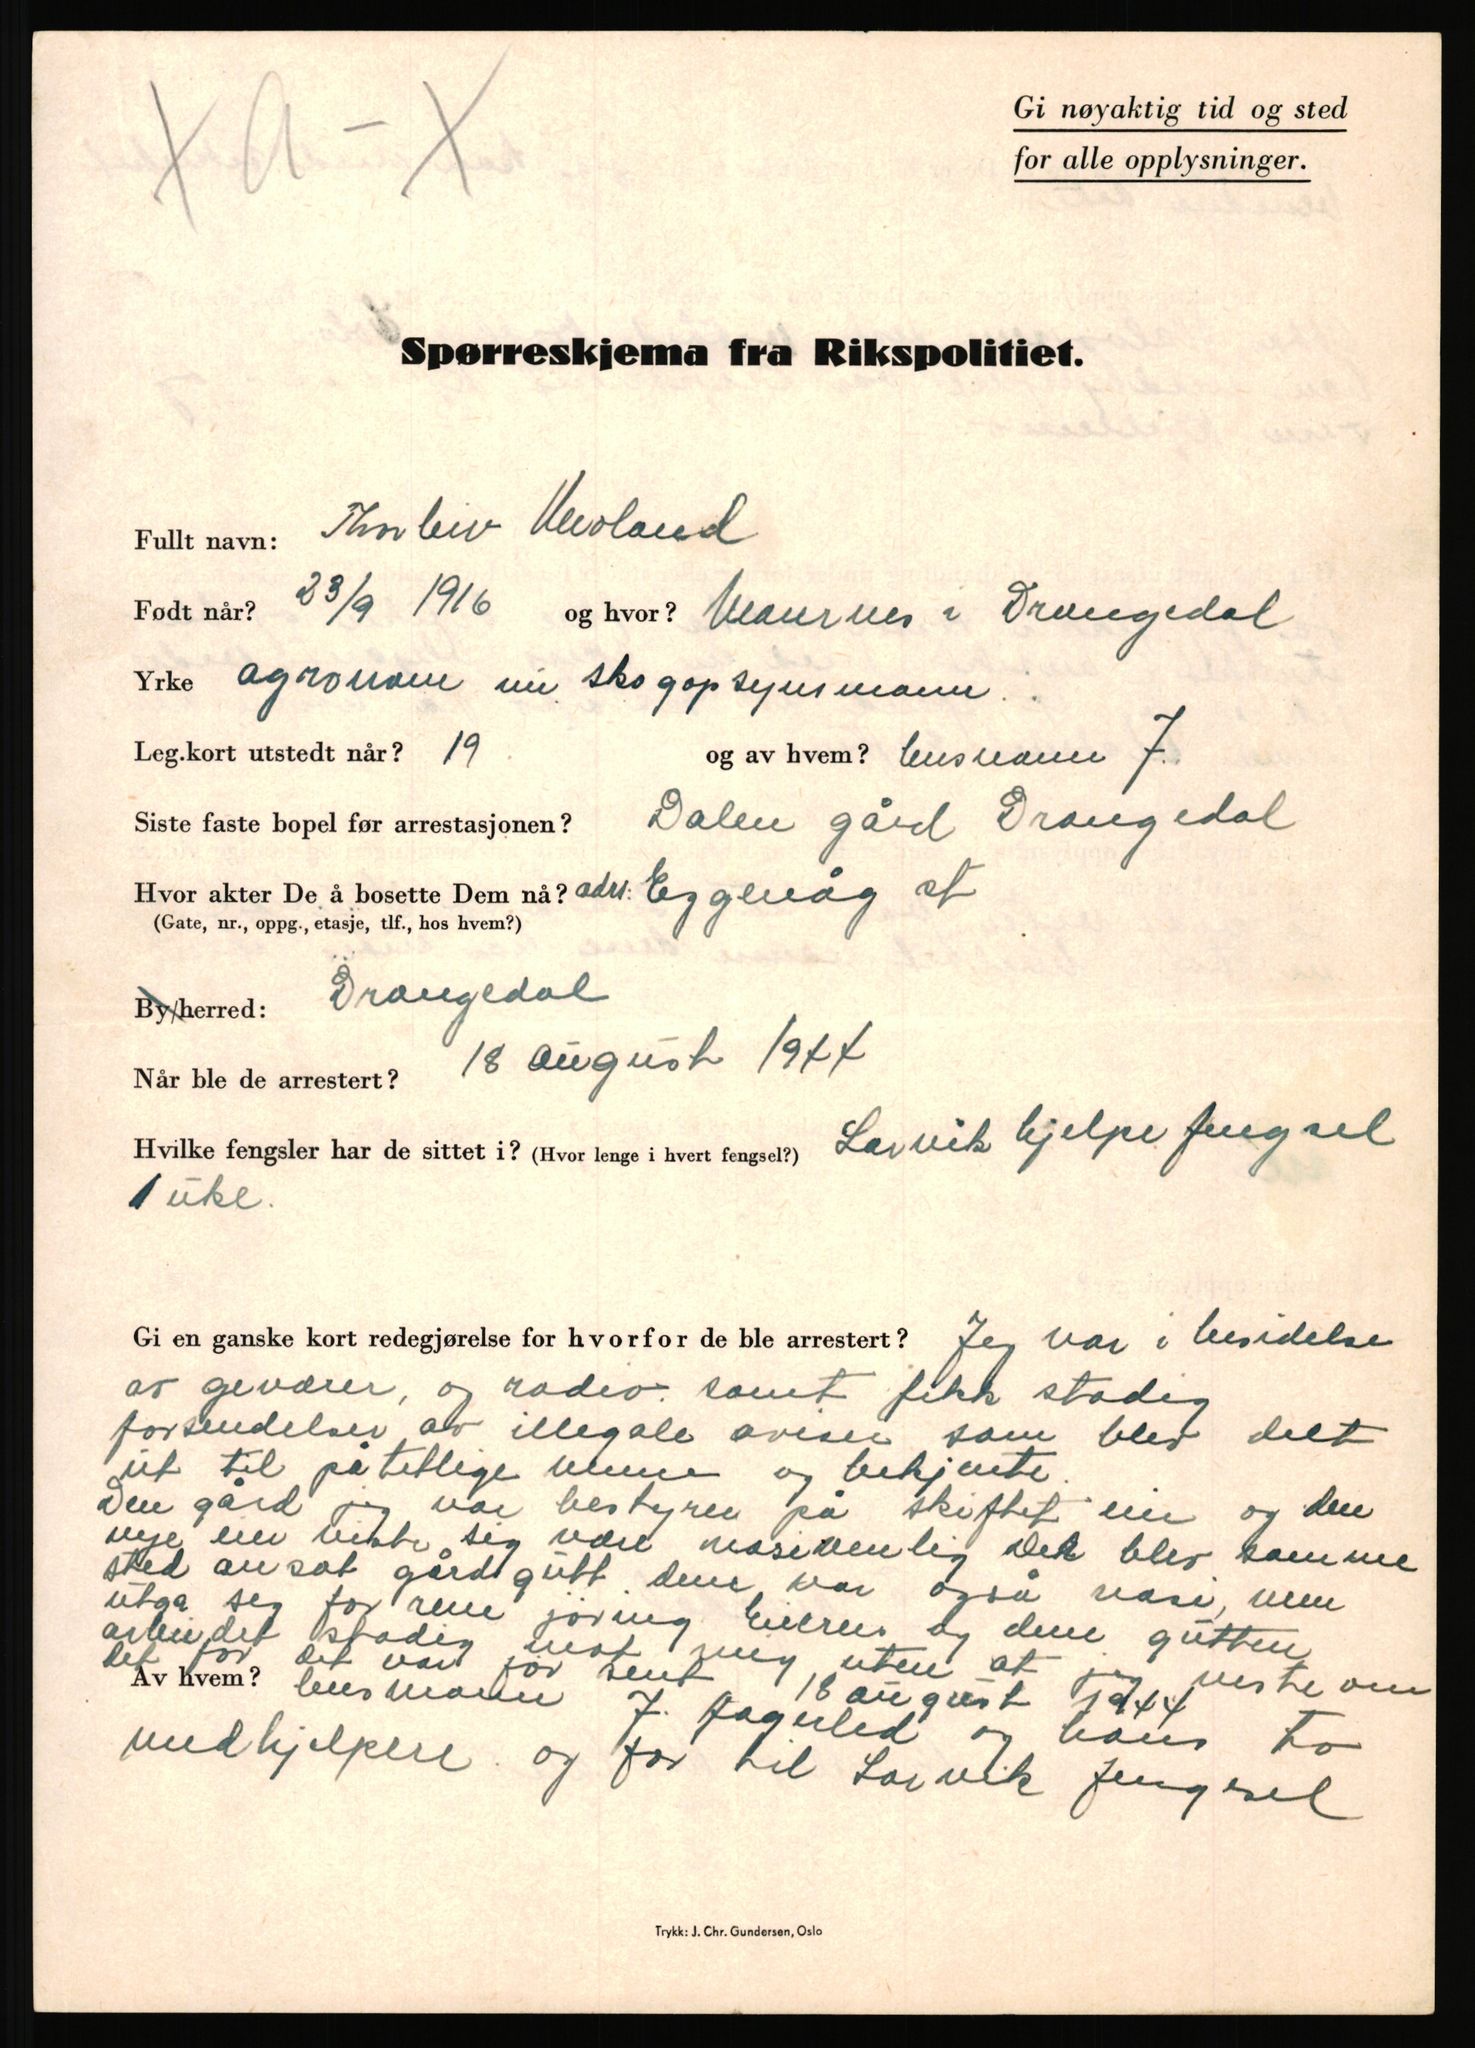 X A - X
Gi nøyaktig tid og sted
for alle opplysninger.
Spørreskjema fra Rikspolitiet.
Fullt navn: Thorleiv
Født når? 23/9 1916 og hvor? i Drangedal
Yrke agronom nu skogopsynsmann.
Leg.kort utstedt når? 19 og av hvem? lensmann J.
Siste faste bopel før arrestasjonen? Dalen gård Drangedal
Hvor akter De å bosette Dem nå? adrs: Eggevåg st
(Gate, nr., oppg., etasje, tlf., hos hvem?)
By/herred: Drangedal
Når ble de arrestert? 18 august 1944
Hvilke fengsler har de sittet i? (Hvor lenge i hvert fengsel?) Larvik hjelpe fengsel
1 uke.
Gi en ganske kort redegjørelse for hvorfor de ble arrestert? Jeg var i besidelse
av geværer, og radio. samt fikk stadig
forsendelser av illegale aviser som blev delt
ut til påtellige venner og bekjente.
Den gård jeg var bestyrer på skiftet eier og den
nye eier viste sig være nasivenlig Det blev samme
sted ansat gårdsgutt. denne var også nasi, men
utga seg for rene jøssing Eieren og denne gutten
arbeidet stadig mot meg uten at jeg viste om
det før det var for sent 18 august 1944
Av hvem? lensmann J. og hans to
medhjelpere og før til Larvik fengsel
Trykk: J. Chr. Gundersen, Oslo